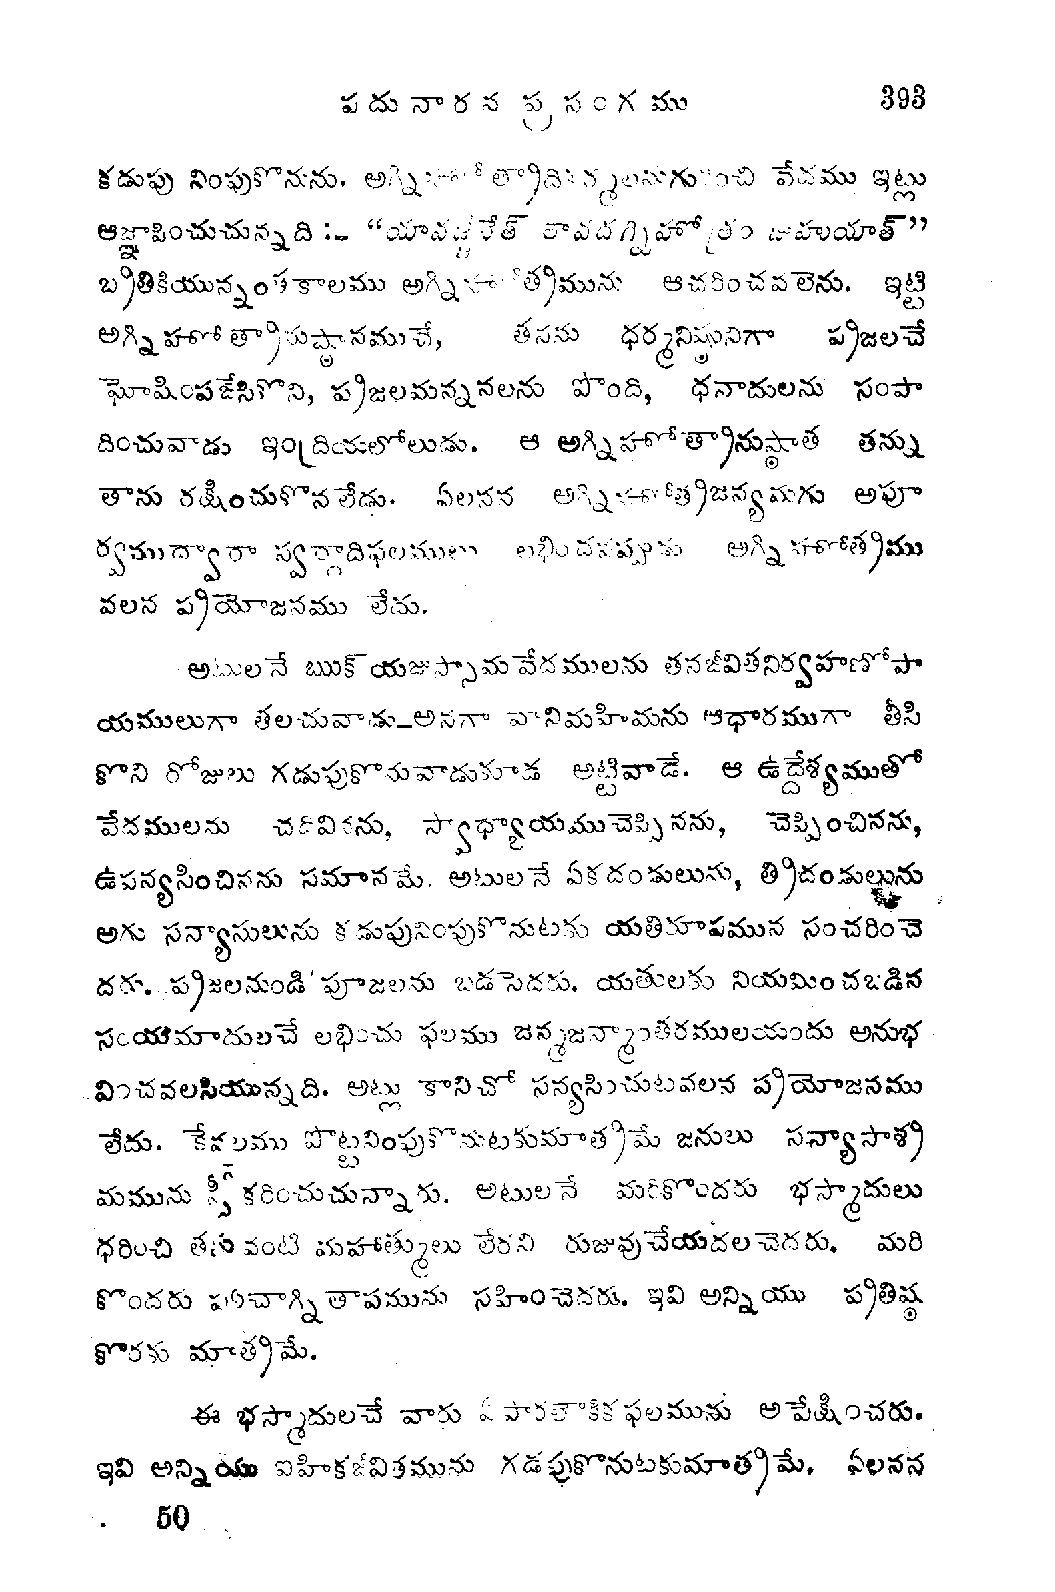 పదునారన ప్రసంగము 393
కడుపు నింపుకొనును. అగ్నిహోత్రాదికర్మలనుగురించి వేదము ఇట్లు
ఆజ్ఞాపించుచున్నది :— “యావజ్జీవేత్ తావదగ్నిహోత్రం జుహుయాత్”
బ్రతికియున్నంతకాలము అగ్నిహోత్రమును ఆచరించవలెను. ఇట్టి
అగ్నిహోత్రానుష్ఠానముచే, తనను ధర్మనిష్ఠునిగా ప్రజలచే
ఘోషింపజేసికొని, ప్రజలమన్ననలను పొంది, ధనాదులను సంపా
దించువాడు ఇంద్రియలోలుడు. ఆ అగ్నిహోత్రానుష్ఠాత తన్ను
తాను రక్షించుకొనలేడు. ఏలనన అగ్నిహోత్రజన్యమగు అపూ
ర్వముద్వారా స్వర్గాదిఫలములు లభించనప్పుడు అగ్నిహోత్రము
వలన ప్రయోజనము లేదు.
అటులనే ఋక్‌యజుస్సామవేదములను తనజీవితనిర్వహణోపా
యములుగా తలచువాడు—అనగా వానిమహిమను ఆధారముగా తీసి
కొని రోజులు గడుపుకొనువాడుకూడ అట్టివాడే. ఆ ఉద్దేశ్యముతో
వేదములను చదివినను, స్వాధ్యాయముచెప్పినను, చెప్పించినను,
ఉపన్యసించినను సమానమే. అటులనే ఏకదండులును, త్రిదండులును
అగు సన్యాసులును కడుపునింపుకొనుటకు యతిరూపమున సంచరించె
దరు. ప్రజలనుండి పూజలను బడసెదరు. యతులకు నియమించబడిన
సంయమాదులచే లభించు ఫలము జన్మజన్మాంతరములయందు అనుభ
వించవలసియున్నది. అట్లు కానిచో సన్యసించుటవలన ప్రయోజనము
లేదు. కేవలము పొట్టనింపుకొనుటకుమాత్రమే జనులు సన్యాసాశ్ర
మమును స్వీకరించుచున్నారు. అటులనే మరికొందరు భస్మాదులు
ధరించి తమవంటి మహాత్ములు లేరని రుజువుచేయదలచెదరు. మరి
కొందరు పంచాగ్నితాపమును సహించెదరు. ఇవి అన్నియు ప్రతిష్ఠ
కొరకు మాత్రమే.
ఈ భస్మాదులచే వారు ఏ పారలౌకికఫలమును అపేక్షించరు.
ఇవి అన్నియు ఐహికజీవితమును గడపుకొనుటకుమాత్రమే. ఏలనన
50